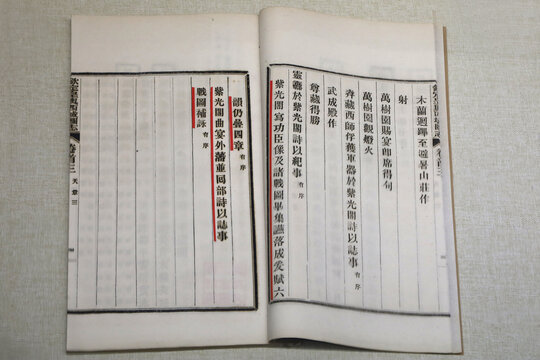 木蘭迴蹕至避暑山莊作
射
萬樹園賜宴即席得句
萬樹園觀燈火
弆藏西師俘獲軍器於紫光閣詩以誌事有序
武成殿作
尊藏得勝
靈纛於紫光閣詩以紀事有序
紫光閣寫功臣像及諸戰圖畢集讌落成爰賦六
韻仍疊四章有序
紫光閣曲宴外藩並回部詩以誌事有序
戰圖補詠有序
欽定皇輿西域圖志
卷首三
天章三